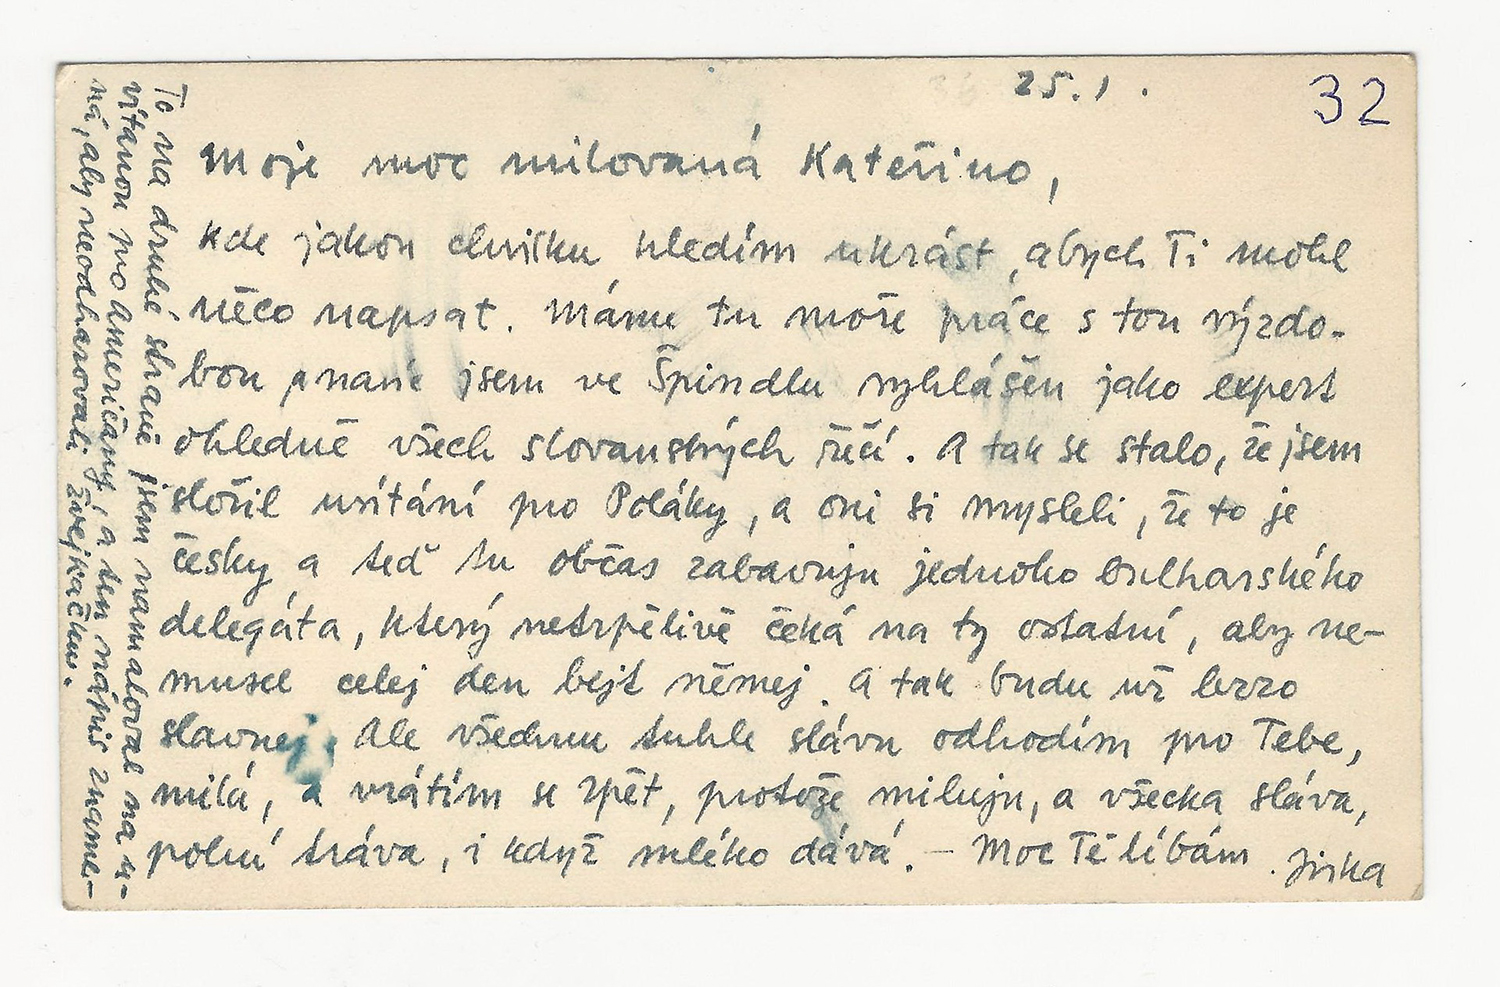 25.1.
32
Moje moc milovaná Kateřino,
kde jakou chvilku hledím ukrást, abych Ti mohl
něco napsat. Máme tu moře práce s tou výzdo-
bou a navíc jsem ve Špindlu vyhlášen jako expert
ohledně všech slovanských řečí. A tak se stalo, že jsem
složil uvítání pro Poláky, a oni si mysleli, že to je
česky a teď tu občas zabavuju jednoho bulharského
delegáta, který netrpělivě čeká na ty ostatní, aby ne-
musel celej den bejt němej. A tak budu už brzo
slavnej. Ale všechnu tuhle slávu odhodím pro Tebe,
milá, a vrátím se zpět, protože miluju, a všecka sláva,
polní tráva, i když mléko dává. – Moc Tě líbám. Jirka
To na druhé straně jsem namaloval na u-
vítanou pro Američany, a ten nápis zname-
ná, aby neodharovali žvejkačkus.